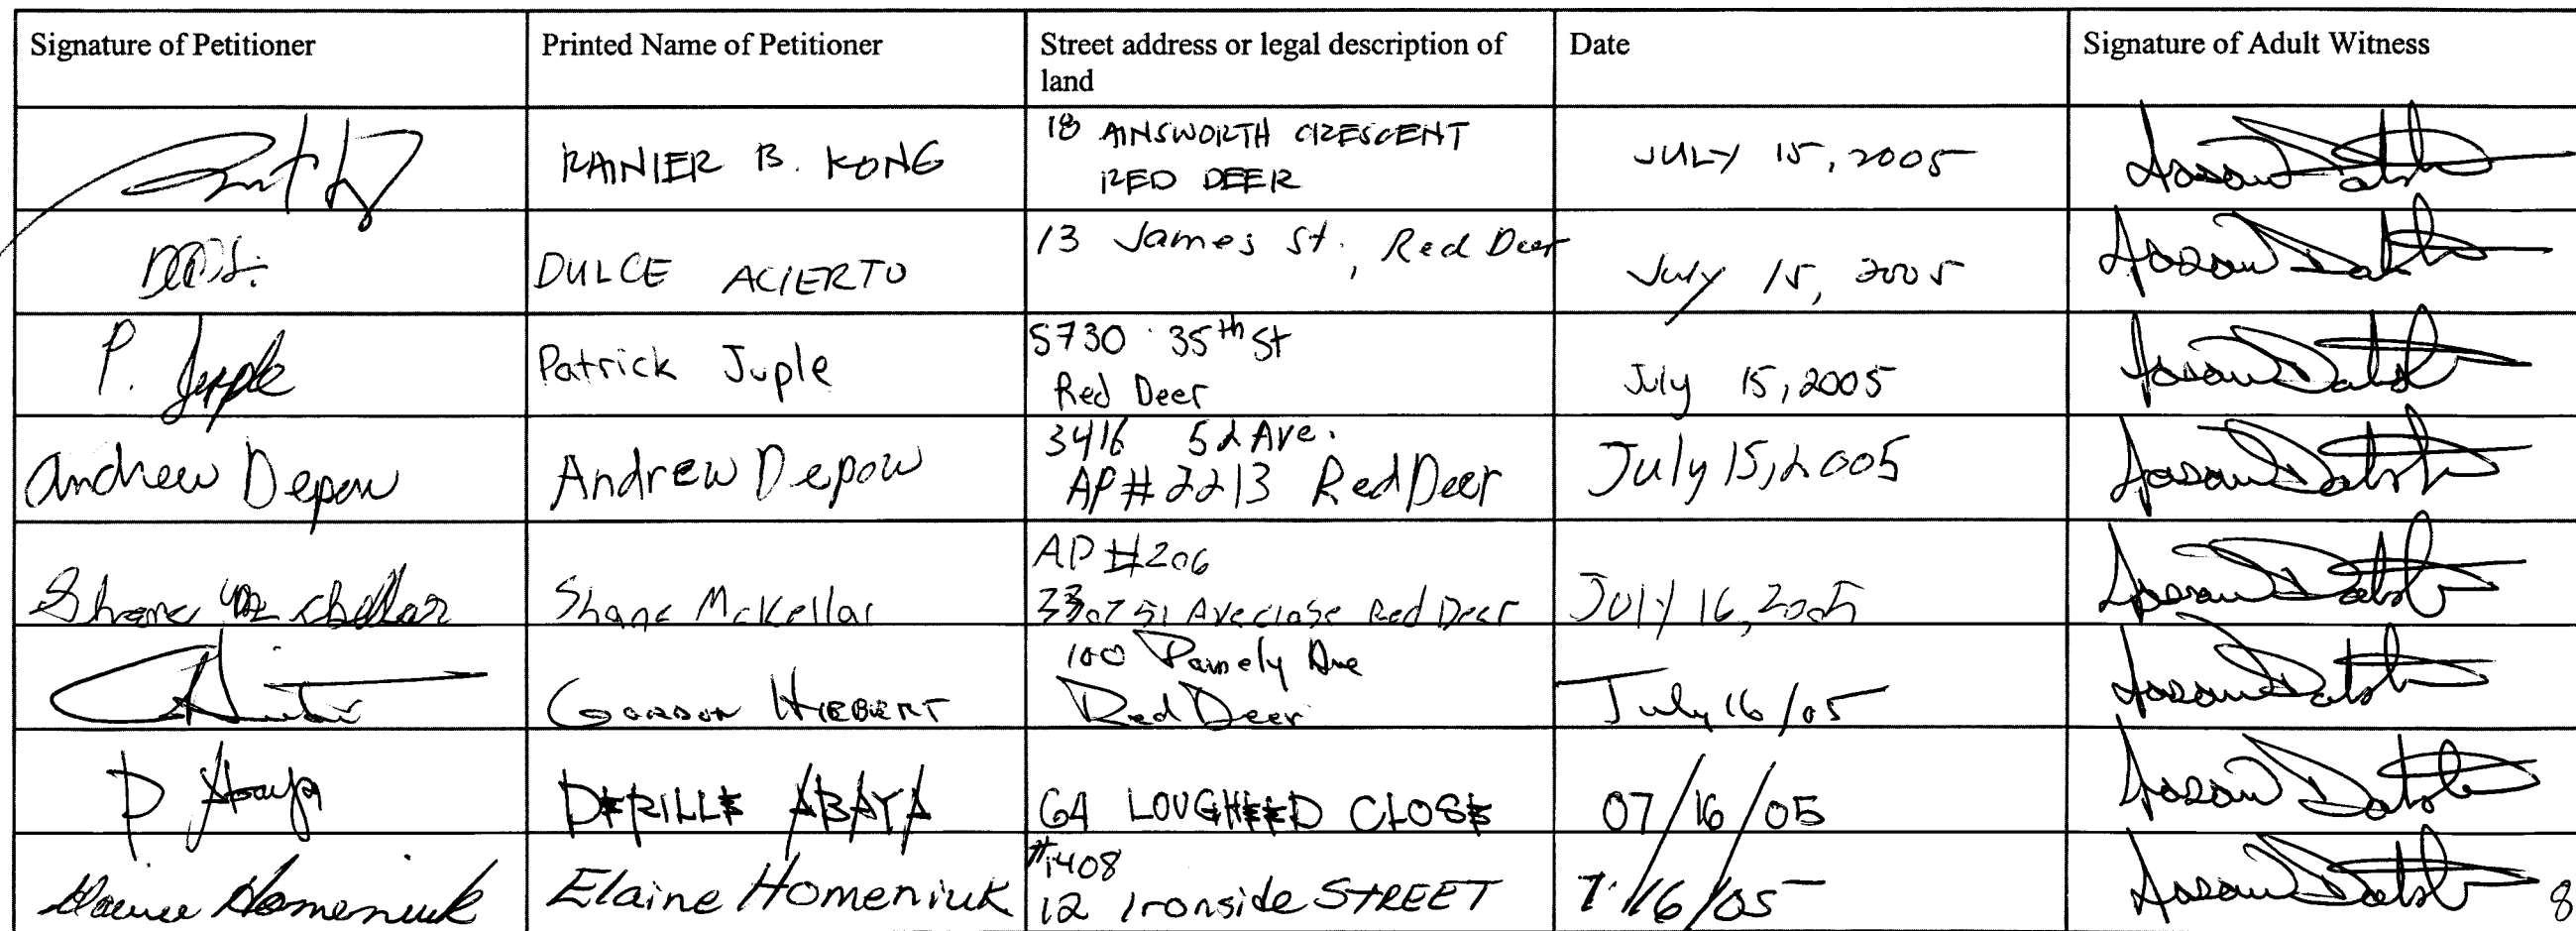 Signature of Petitioner Printed Name of Petitioner Street address or legal description of land Date Signature of Adult Witness
RAINIER B. KONG 18 AINSWORTH CRESCENT RED DEER JULY 15, 2005
DULCE ACIERTO 13 James St., Red Deer July 15, 2005
P. Juple Patrick Juple 5730 35th St Red Deer July 15, 2005
Andrew Depow Andrew Depow 3416 52 Ave. AP# 2213 Red Deer July 15, 2005
Shane McKellar Shane McKellar AP #206 3307 51 Ave close Red Deer July 16, 2005
GORDON HIEBERT 100 Ave Red Deer July 16/05
D Abaya DERILLE ABAYA 64 LOUGHEED CLOSE 07/16/05
Elaine Homeniuk Elaine Homeniuk #1408 12 Ironside STREET 7/16/05
8